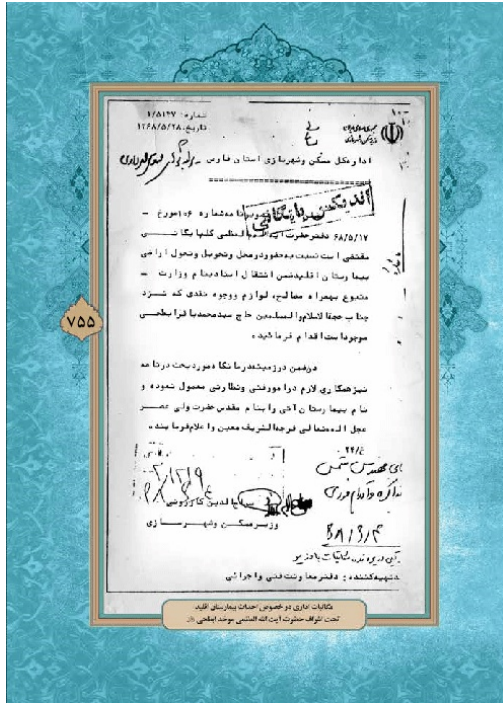 شماره: ۱/۵۱۴۷
تاریخ: ۱۳۶۸/۵/۲۸
اداره کل مسکن و شهرسازی استان فارس -
اندیکس بایگانی
نامه شماره ۱۰۶ مورخ -
۶۸/۵/۱۷ دفتر حضرت آیت اله العظمی گلپایگانی
مقتضی است نسبت به حضور در محل و تحویل و تحول اراضی
بیمارستان اقلید ضمن انتقال اسناد بنام وزارت -
متبوع بهمراه مصالح، لوازم و وجوه نقدی که نزد
جناب حجة الاسلام والمسلمین حاج سید محمد باقر ابطحی
موجود است اقدام فرمائید.
در ضمن در زمینه درمانگاه مورد بحث در نامه
نیز همکاری لازم در امور فنی و نظارتی معمول نموده و
نام بیمارستان آتی را بنام مقدس حضرت ولی عصر
عجل اله تعالی فرجه الشریف معین و اعلام فرمایند.
سراج الدین کازرونی
وزیر مسکن و شهرسازی
تهیه کننده: دفتر معاونت فنی و اجرائی
۷۵۵
مکاتبات اداری در خصوص احداث بیمارستان اقلید
تحت اشراف حضرت آیت الله العظمی موحد ابطحی